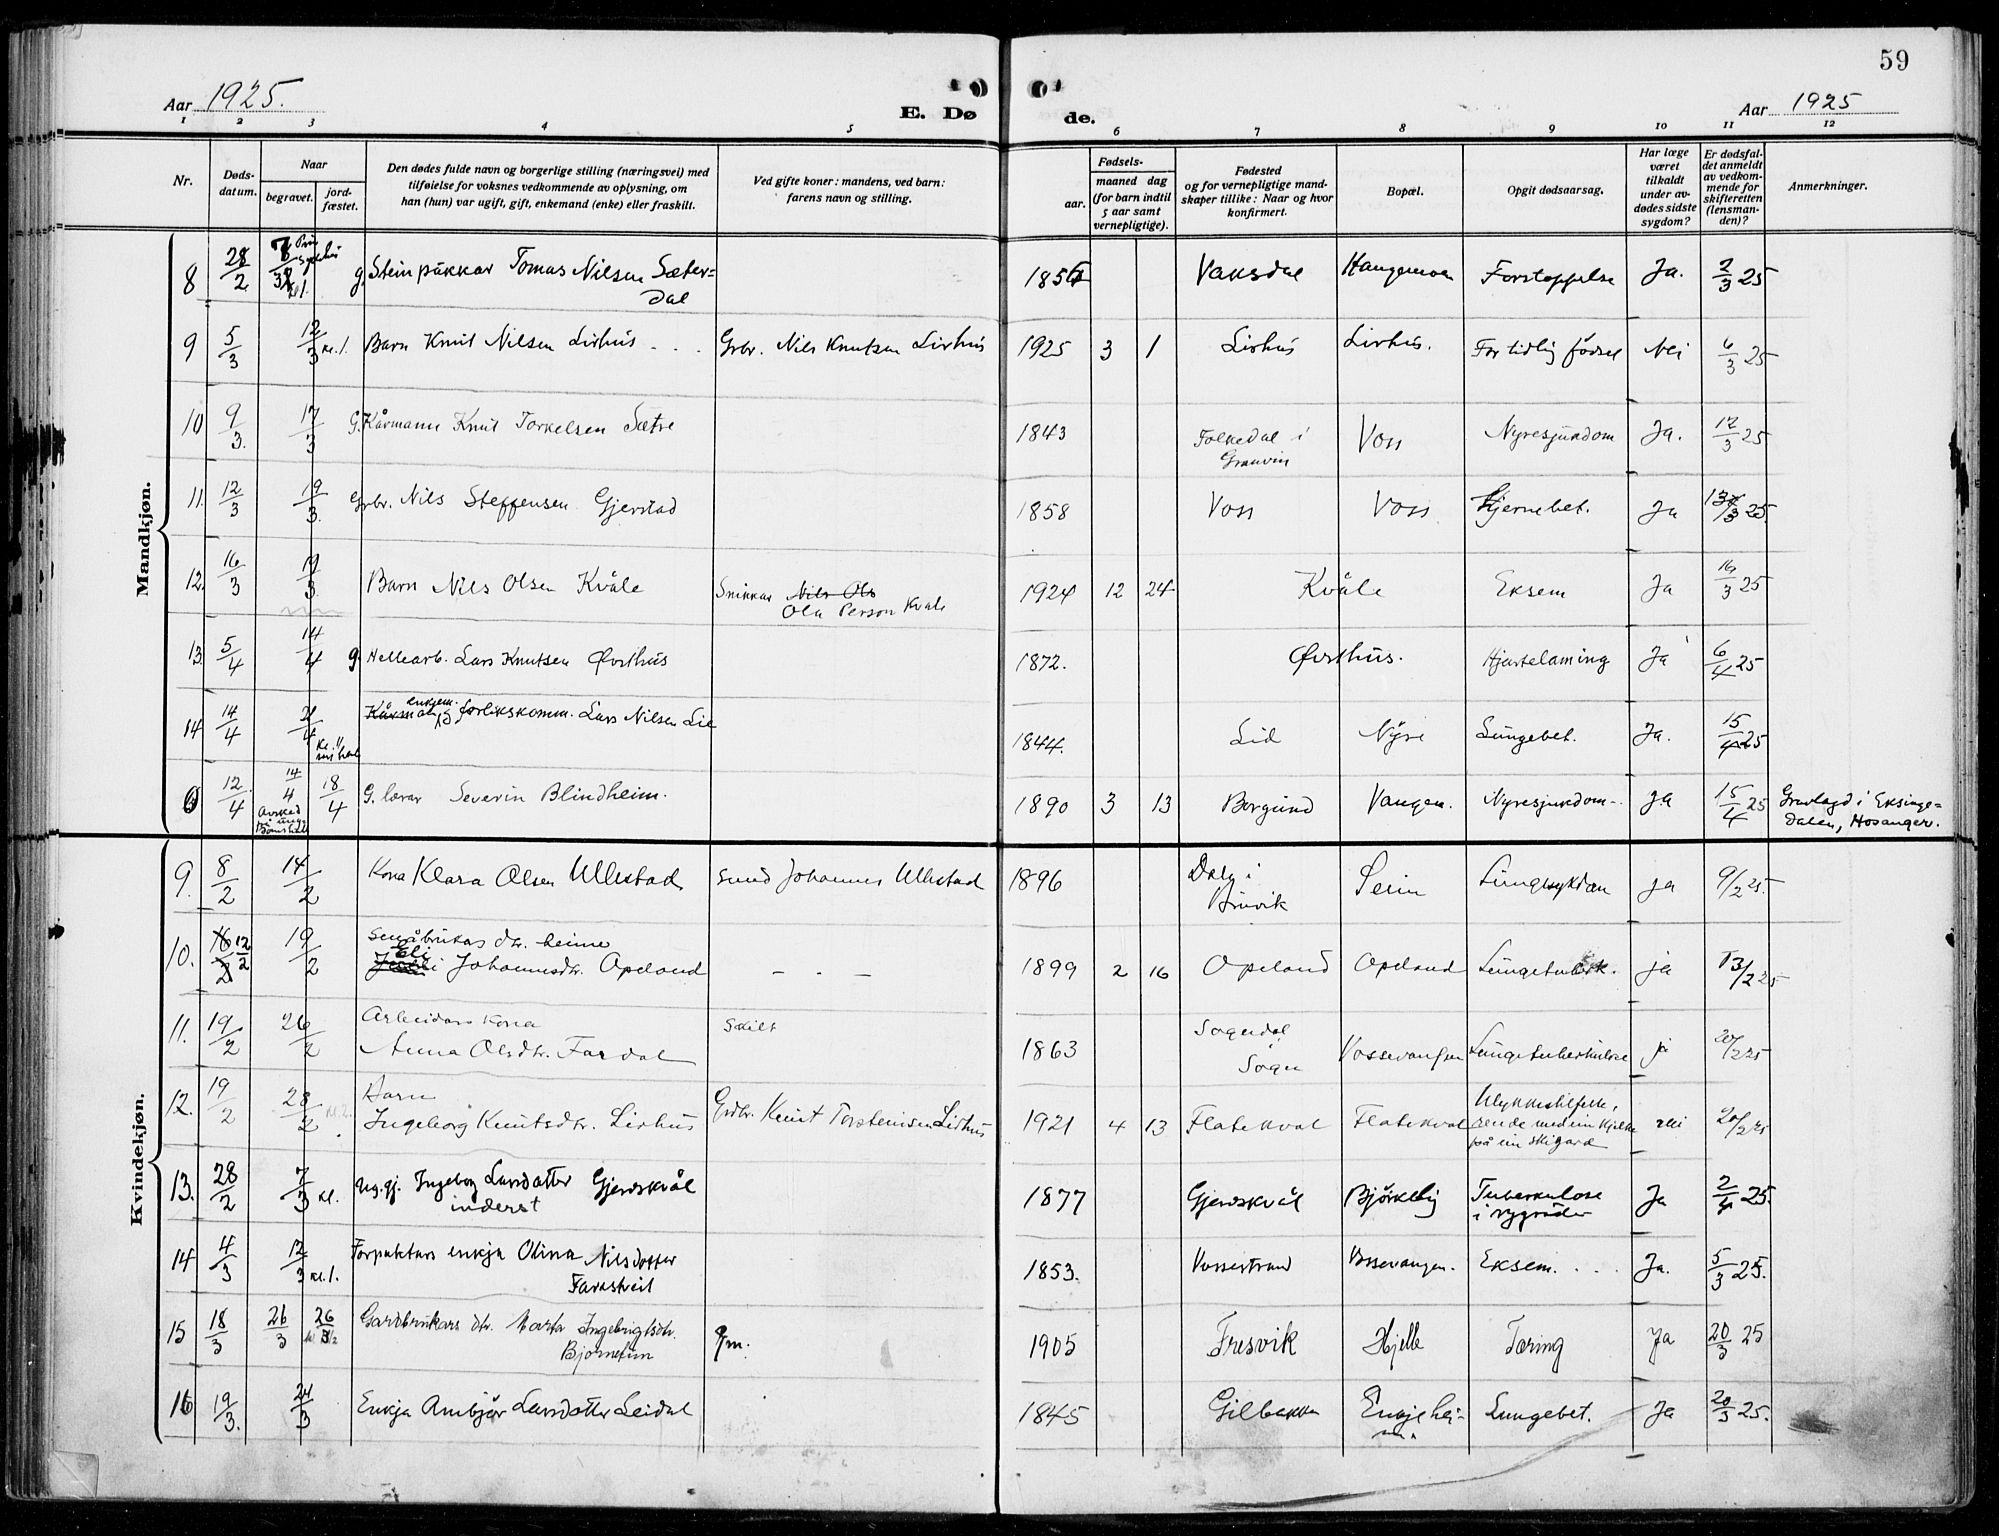 59
Aar 1925.
E. Døde.
Aar 1925
1 2 3 4 5 6 7 8 9 10 11 12
Nr.
Døds-
datum.
Naar
begravet.
jord-
fæstet.
Den dødes fulde navn og borgerlige stilling (næringsvei) med
tilføielse for voksnes vedkommende av oplysning, om
han (hun) var ugift, gift, enkemand (enke) eller fraskilt.
Ved gifte koner: mandens, ved barn:
farens navn og stilling.
Fødsels-
aar.
maaned dag
(for barn indtil
5 aar samt
vernepligtige).
Fødested
og for vernepligtige mand-
skaper tillike: Naar og hvor
konfirmert.
Bopæl.
Opgit dødsaarsag.
Har læge
været
tilkaldt
under av-
dødes sidste
sygdom?
Er dødsfal-
det anmeldt
av vedkom-
mende for
skifteretten
(lensman-
den)?
Anmerkninger.
Mandkjøn.
8 28/2 g. Steinpukkar Tomas Nilsen Sæter= Vaksdal Haugamoen Forstoppelse Ja. 2/3 25
dal
9 5/3 12/3 kl. 1. Barn Knut Nilsen Lirhus Grbr. Nils Knutsen Lirhus 1925 3 1 Lirhus Lirhus. For tidlig fødsel Nei 6/3 25
10 9/3. 17/3 G. Kårmann Knut Torkelsen Sætre 1843 Folkedal i Voss Nyresjukdom Ja. 17/3 25
Granvin
11. 12/3 19/3. Grbr. Nils Steffensen Gjerstad 1858 Voss Voss Hjernebet. Ja 13/3 25.
12. 16/3 19/3. Barn Nils Olsen Kvåle Snikkar Nils Ols 1924 12 24 Kvåle Eksem Ja 16/3 25
Ola Person Kvåle
13. 5/4 14/4 g. Hellearb. Lars Knutsen Øvsthus 1872. Øvsthus. Hjartelaming Ja 6/4 25
14 14/4 21/4 Kårmann enkjem. forlikskomm. Lars Nilsen Lie 1844. Lid Nyre Lungebet. Ja. 15/4 25
12/4 14/4 18/4 G. lærar Severin Blindheim. 1890 3 13 Borgund Vangen. Nyresjukdom Ja 15/4 25 Gravlagd i Eksinge=
dalen, Hosanger.
Kvindekjøn.
9. 8/2 14/2 Kona Klara Olsen Ullestad Smed Johannes Ullestad 1896 Dale i Lungesykdom ja 9/2 25.
Bruvik
10. 12/2 19/2 Småbrukars dtr. heime
Eli Johannesdtr. Opeland - . - 1899 2 16 Opeland Opeland Lungetuberk. ja 13/2 25
11. 19/2 26/2 Arbeidars kona Skilt Sogndal
Anna Olsdtr. Fardal 1863 Sogn Vossevangen Lungetuberkulose ja 20/2 25
12. 19/2 28/2 Barn Ulykkestilfelle,
Ingeborg Knutsdtr. Lirhus Grdbr. Knut Torsteinsen Lirhus 1921 4 13 Flatekval Flatekval rende med ein kjelke nei 20/2 25
på ein skigard
13. 28/2 7/3 kl. ug. gj. Ingeborg Larsdatter Gjerdskvål 1877 Gjerdskvål Björkelig Tuberkulose Ja 25.
inderst i rygraden
14 4/3 12/3 kl. 1. Forpaktars enkja Olina Nilsdotter 1853. Vossestrand Vossevangen. Eksem. Ja. 5/3 25.
Farestveit
15 18/3 26/3 26/3 Gardbrukars dtr. Marta Ingebrigtsdtr. 1905 Fresvik Hjelle Tæring Ja 20/3 25
16 19/3. 24/3 Enkja Ambjör Larsdotter Leidal 1845 Gilbakka Enkjehei- Lungebet. Ja 20/3 25.